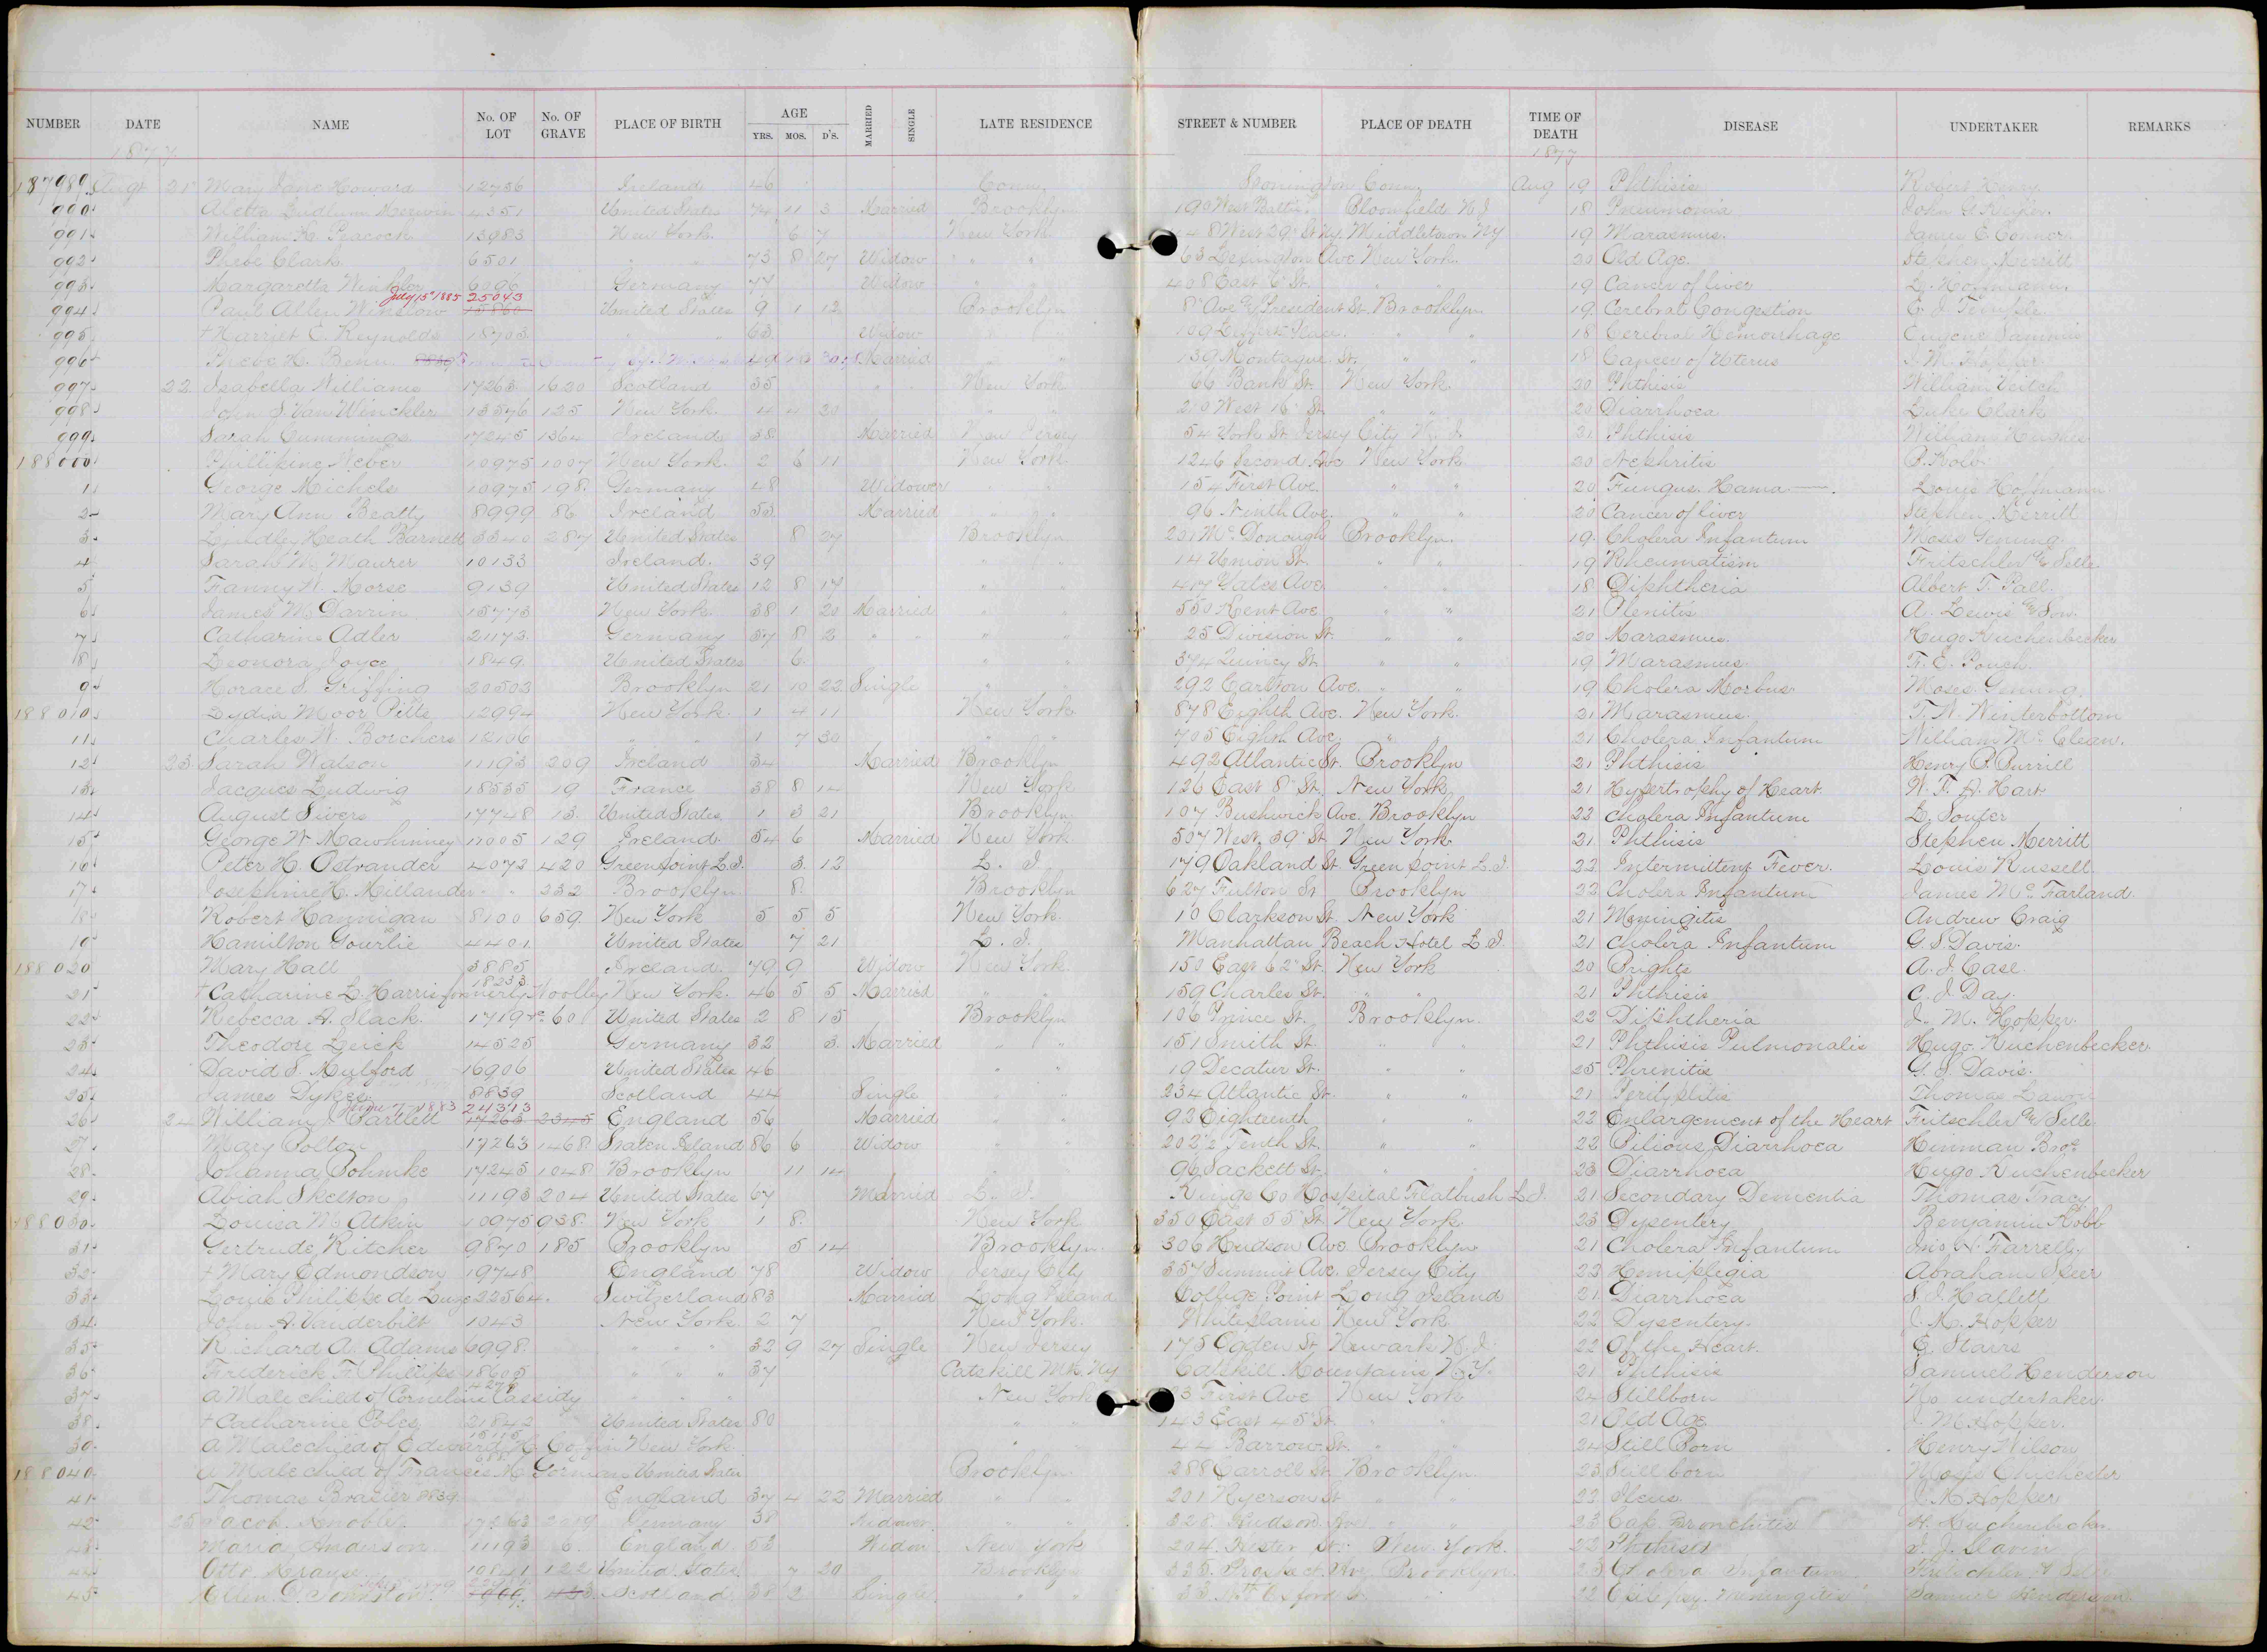 NUMBER DATE NAME No. OF LOT No. OF GRAVE PLACE OF BIRTH AGE YRS. MOS. D'S. MARRIED SINGLE LATE RESIDENCE STREET & NUMBER PLACE OF DEATH TIME OF DEATH DISEASE UNDERTAKER REMARKS
1877 1877
187989 Augt 21 Mary Jane Howard 12756 Ireland 46 Conn. Stonington Conn. Aug 19 Phthisis Robert Henry
990 Aletta Ludlum Merwin 4351 United States 74 11 3 Married Brooklyn 190 West Baltic Bloomfield N.J. 18 Pneumonia John G.
991 William H. Peacock 13983 New York 6 7 New York 48 West 29 St Ny. Middletown NY 19 Marasmus. James C. Conner
992 Phebe Clark 6501 " " 73 8 27 Widow " " 63 Lexington Ave New York. 20 Old Age. Stephen Merritt
993 Margaretta Winkler 6196 Germany 77 Widow " 408 East 6 St. " " 19 Cancer of liver L. Hoffmann.
July 15th 1885 25043
994 Paul Allen Winslow 15860 United States 9 1 12 Brooklyn 8 Ave & President St. Brooklyn. 19 Cerebral Congestion E. J. Temple.
995 + Harriet C. Reynolds 18703 " " 63 Widow " " 109 Lefferts Place. " " 18 Cerebral Hemorrhage Eugene Sammis
996 Phebe H. Benn. 49 10 Married " " 139 Montague St. " " 18 Cancer of Uterus J. M. Hopper
997 22 Isabella Williams 17263 1620 Scotland 35 " " New York 66 Bank St. New York. 20 Phthisis William Veitch
998 John S. Van Winckler 13576 125 New York. 4 4 20 " " 210 West 16 St. " " 20 Diarrhoea Luke Clark
999 Sarah Cummings 17245 1364 Ireland 38 Married New Jersey 54 York St. Jersey City N.J. 21 Phthisis William Hughes
188000 Phillipine Weber 10975 1007 New York. 2 6 11 New York 1246 Second Ave New York 20 Nephritis P. Kolb
1 George Michels 10975 198 Germany 48 Widower " " 154 First Ave. " " 20 Fungus. Hama Louis Hoffmann
2 Mary Ann Beatty 8999 86 Ireland 53 Married " " 96 Ninth Ave. " " 20 Cancer of liver Stephen Merritt
3 Lindley Heath Barnett 3340 287 United States 8 27 Brooklyn 201 Mc Donough Brooklyn. 19 Cholera Infantum Moses Genung
4 Sarah M. Maurer 10133 Ireland. 39 " " 14 Union St. " " 19 Rheumatism Fritschler & Selle.
5 Fanny W. Morse 9139 United States 12 8 17 " " 417 Gates Ave " " 18 Diphtheria Albert T. Pall.
6 James M Darrin 15773 New York. 38 1 20 Married " " 550 Kent Ave " " 21 A. Lewis & Son.
7 Catharine Adler 21173 Germany 37 8 2 " " " " 25 Division St. " " 20 Marasmus. Hugo Kuchenbecker
8 Leonora Joyce 1849 United States 6 " " 374 Quincy St. " " 19 Marasmus. F. E. Pouch.
9 Horace S. Griffing 20503 Brooklyn 21 10 22 Single " " 292 Carlton Ave. " " 19 Cholera Morbus Moses Genung.
188010 Lydia Moor Pitts 12994 New York. 1 4 11 New York. 878 Eighth Ave. New York. 21 Marasmus. T. W. Winterbottom
11 Charles W. Borchers 12106 " " 1 7 30 " " 705 Eighth Ave. " " 21 Cholera Infantum William Mc Clean.
12 23 Sarah Watson 11193 209 Ireland 34 Married Brooklyn 492 Atlantic St. Brooklyn 21 Phthisis Henry P. Burrill
13 Jacques Ludwig 18535 19 France 38 8 14 New York 126 East 8 St. New York. 21 Hypertrophy of Heart W. F. A. Hart
14 August Sivers 17748 13 United States 1 3 21 Brooklyn 107 Bushwick Ave. Brooklyn 22 Cholera Infantum D. Souter
15 George W Mawhinney 17005 129 Ireland. 54 6 Married New York 507 West 39 St. New York. 21 Phthisis Stephen Merritt
16 Peter H. Ostrander 4073 420 Greenpoint L.I. 3 12 L. I. 179 Oakland St. Green point L.I. 22 Intermittent Fever. Louis Russell
17 Josephine H. Millander " 232 Brooklyn 8 Brooklyn 627 Fulton St Brooklyn 22 Cholera Infantum James Mc Farland.
18 Robert Hannigan 8100 659 New York 5 5 5 New York. 10 Clarkson St. New York 21 Meningitis Andrew Craig
19 Hamilton Gourlie 4401 United States 7 21 L. I. Manhattan Beach Hotel L.I. 21 Cholera Infantum G. S. Davis.
188020 Mary Hall 3885 Ireland. 79 9 Widow New York. 150 East 62 St. New York 20 Brights A. J. Case.
18233
21 + Catharine L. Harris formerly Woolley New York. 46 5 5 Married " " 159 Charles St. " " 21 Phthisis C. J. Day.
22 Rebecca A. Slack. 17194 601 United States 2 8 15 Brooklyn 106 Prince St. Brooklyn. 22 Diphtheria J. M. Hopper.
23 Theodore Leick 14525 Germany 32 3 Married " " 151 Smith St. " " 21 Phthisis Pulmonalis Hugo Kuchenbecker.
24 David S. Mulford 16906 United States 46 " " 19 Decatur St. " " 25 Phrenitis G. S. Davis.
25 James Dykes 8839 Scotland 44 Single " " 234 Atlantic St. " " 21 Perityplitis Thomas
June 7 1883 24313
26 24 William J. Bartlett 17263 2345 England 56 Married " " 92 Eighteenth " " 22 Enlargement of the Heart Fritschler & Selle
27 Mary Bolton 17263 1468 Staten Island 86 6 Widow " " 202 1/2 Tenth St. " " 22 Bilious Diarrhoea Hinman Bros
28 Johanna Bohmke 17245 1048 Brooklyn 11 14 " " 96 Sackett St. " " 23 Diarrhoea Hugo Kuchenbecker
29 Abiah Skelton 11193 204 United States 67 Married L. I. Kings Co Hospital Flatbush L.I. 21 Secondary Dementia Thomas Tracy
188030 Louisa M. Atkin 10975 938 New York 1 8 New York 350 East 55 St. New York. 23 Dysentery Benjamin Robb
31 Gertrude Kitcher 9870 185 Brooklyn 5 14 Brooklyn. 306 Hudson Ave Brooklyn 21 Cholera Infantum Farrelly
32 + Mary Edmondson 19748 England 78 Widow Jersey City 357 Summit Ave. Jersey City 22 Hemiplegia Abraham Speer
33 Louis Philippe de Luze 22564. Switzerland 83 Married Long Island College Point Long Island 21 Diarrhoea S. J. Hallett
34 John A. Vanderbilt 1043 New York. 2 7 New York. Whiteplains New York. 22 Dysentery. J. M. Hopper
35 Richard A. Adams 6998 " " " 32 9 27 Single New Jersey 175 Ogden St Newark N.J. 22 Of the Heart. E. Stairs
36 Frederick F. Phillips 18605 " " " 37 Catskill Mt. Ny Catskill Mountains N.Y. 21 Phthisis Samuel Henderson
37 A Male child of Cornelius Cassidy " " " New York 3 First Ave New York 24 Stillborn No undertaker.
38 + Catharine Coles 21842 United States 80 " " 143 East 45 St. " " 21 Old Age J. M. Hopper.
39 A Male child of Edward H. Coffin New York " " 44 Barrow St. " " 24 Still Born Henry Wilson
188040 A Male child of Francis Mc Gorman United States Brooklyn. 288 Carroll St. Brooklyn. 23 Still born Moses Chichester
41 Thomas Brazier 8839 England 37 4 22 Married " " 201 Ryerson St " " 22 Ileus. J. M. Hopper
42 25 Jacob Knobler 17263 2019 Germany 38 Widower " " 328 Hudson Ave " " 23 Cap. Bronchitis H. Kuchenbecker.
43 Maria Anderson 11193 6. England. 53 Widow New York 204. Hester St. New York. 22 Phthisis J. J. Slavin
44 Otto Krause 10841 122 United States. 7 20 Brooklyn Prospect Ave Brooklyn. 23 Cholera Infantum Fritschler & Selle
45 Ellen C. Johnston. Scotland. 38 2 Single " " Oxford St. " 22 Epilepsy. Meningitis Samuel Henderson